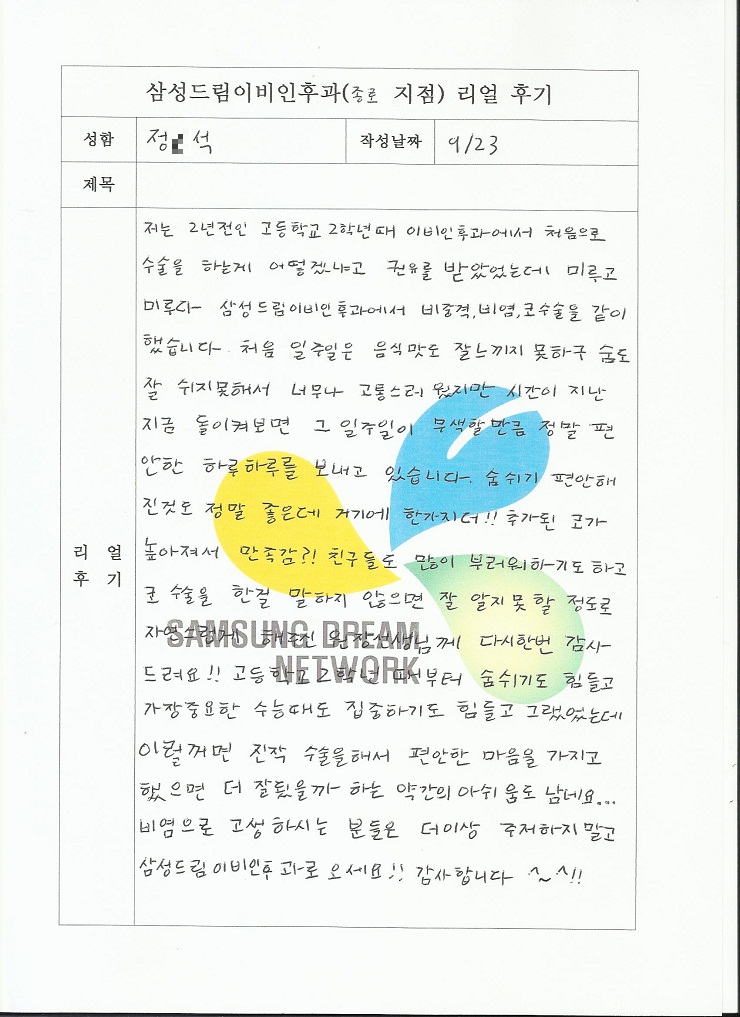 삼성드림이비인후과(종로 지점) 리얼 후기
성함 정 석 작성날짜 9/23
제목
저는 2년전인 고등학교 2학년때 이비인후과에서 처음으로
수술을 하는게 어떻겠냐고 권유를 받았었는데 미루고
미루다 삼성드림이비인후과에서 비중격,비염,코수술을 같이
했습니다. 처음 일주일은 음식맛도 잘느끼지 못하구 숨도
잘 쉬지못해서 너무나 고통스러웠지만 시간이 지난
지금 돌이켜보면 그 일주일이 무색할만큼 정말 편
안한 하루하루를 보내고 있습니다. 숨쉬기 편안해
진것도 정말 좋은데 거기에 한가지더!! 추가된 코가
높아져서 만족감?! 친구들도 많이 부러워하기도 하고
코 수술을 한걸 말하지 않으면 잘 알지못할 정도로
자연스럽게 해주신 원장선생님께 다시한번 감사
드려요!! 고등학교 2학년 때부터 숨쉬기도 힘들고
가장중요한 수능때도 집중하기도 힘들고 그랬었는데
이럴꺼면 진작 수술을해서 편안한 마음을 가지고
했으면 더 잘됬을까 하는 약간의 아쉬움도 남네요...
비염으로 고생하시는 분들은 더이상 주저하지말고
삼성드림이비인후과로 오세요!! 감사합니다 ^~^!!
리 얼
후 기
SAMSUNG DREAM
NETWORK